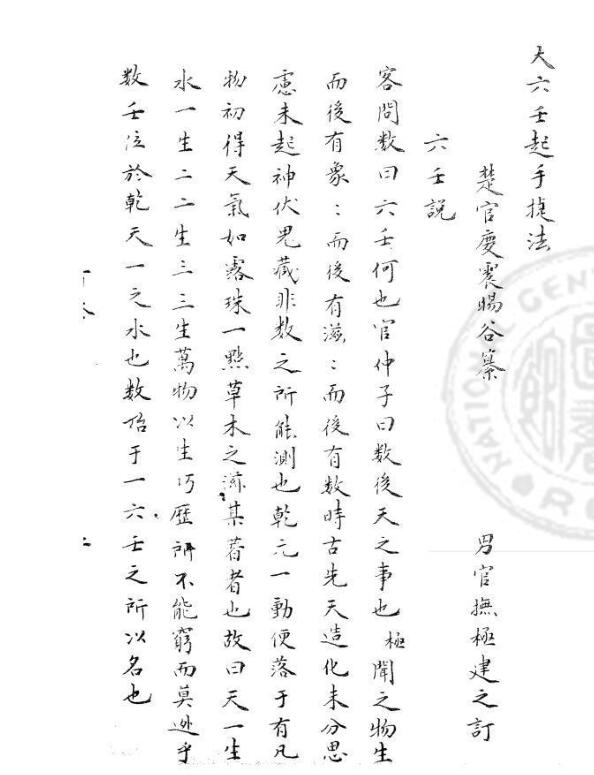 大六壬起手捷法
楚官慶震暘谷纂 男官撫極建之訂
六壬説
客問数曰六壬何也官仲子曰数後天之事也極聞之物生
而後有象：而後有滋：而後有数時古先天造化未分思
慮未起神伏鬼藏非数之所能測也乾元一動便落于有凡
物初得天氣如露珠一點草木之滋其著者也故曰天一生
水一生二二生三三生萬物以生巧歷所不能窮而莫逃乎
数壬位於乾天一之水也数始于一六壬之所以名也
NATIONAL CENT